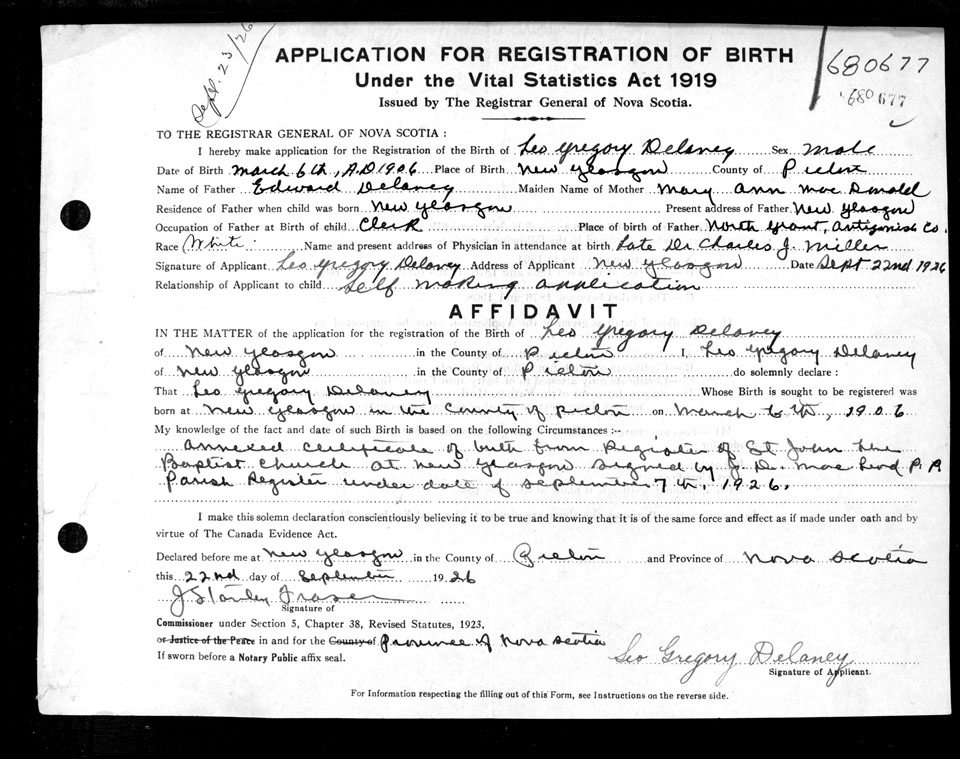 Sept. 23/26
APPLICATION FOR REGISTRATION OF BIRTH
680677
Under the Vital Statistics Act 1919
680 677
Issued by The Registrar General of Nova Scotia.
TO THE REGISTRAR GENERAL OF NOVA SCOTIA :
I hereby make application for the Registration of the Birth of Leo Gregory Delaney Sex Male
Date of Birth March 6th, A.D 1906 Place of Birth New Glasgow County of Pictou
Name of Father Edward Delaney Maiden Name of Mother Mary Ann Mac Donald
Residence of Father when child was born New Glasgow Present address of Father New Glasgow
Occupation of Father at Birth of child Clerk Place of birth of Father North Grant, Antigonish Co.
Race White Name and present address of Physician in attendance at birth Late Dr Charles J. Miller
Signature of Applicant Leo Gregory Delaney Address of Applicant New Glasgow Date Sept 22nd 1926
Relationship of Applicant to child Self making application
AFFIDAVIT
IN THE MATTER of the application for the registration of the Birth of Leo Gregory Delaney
of New Glasgow in the County of Pictou I, Leo Gregory Delaney
of New Glasgow in the County of Pictou do solemnly declare :
That Leo Gregory Delaney Whose Birth is sought to be registered was
born at New Glasgow in the County of Pictou on March 6th, 1906
My knowledge of the fact and date of such Birth is based on the following Circumstances :-
Annexed certificate of birth from Register of St John the
Baptist Church at New Glasgow signed by J. D. Mac Leod P. P.
Parish Register under date of September 7th, 1926.
I make this solemn declaration conscientiously believing it to be true and knowing that it is of the same force and effect as if made under oath and by
virtue of The Canada Evidence Act.
Declared before me at New Glasgow in the County of Pictou and Province of Nova Scotia
this 22nd day of September 1926
J Stanley Fraser
Signature of
Commissioner under Section 5, Chapter 38, Revised Statutes, 1923,
or Justice of the Peace in and for the County of Province of Nova Scotia
If sworn before a Notary Public affix seal.
Leo Gregory Delaney
Signature of Applicant.
For Information respecting the filling out of this Form, see Instructions on the reverse side.